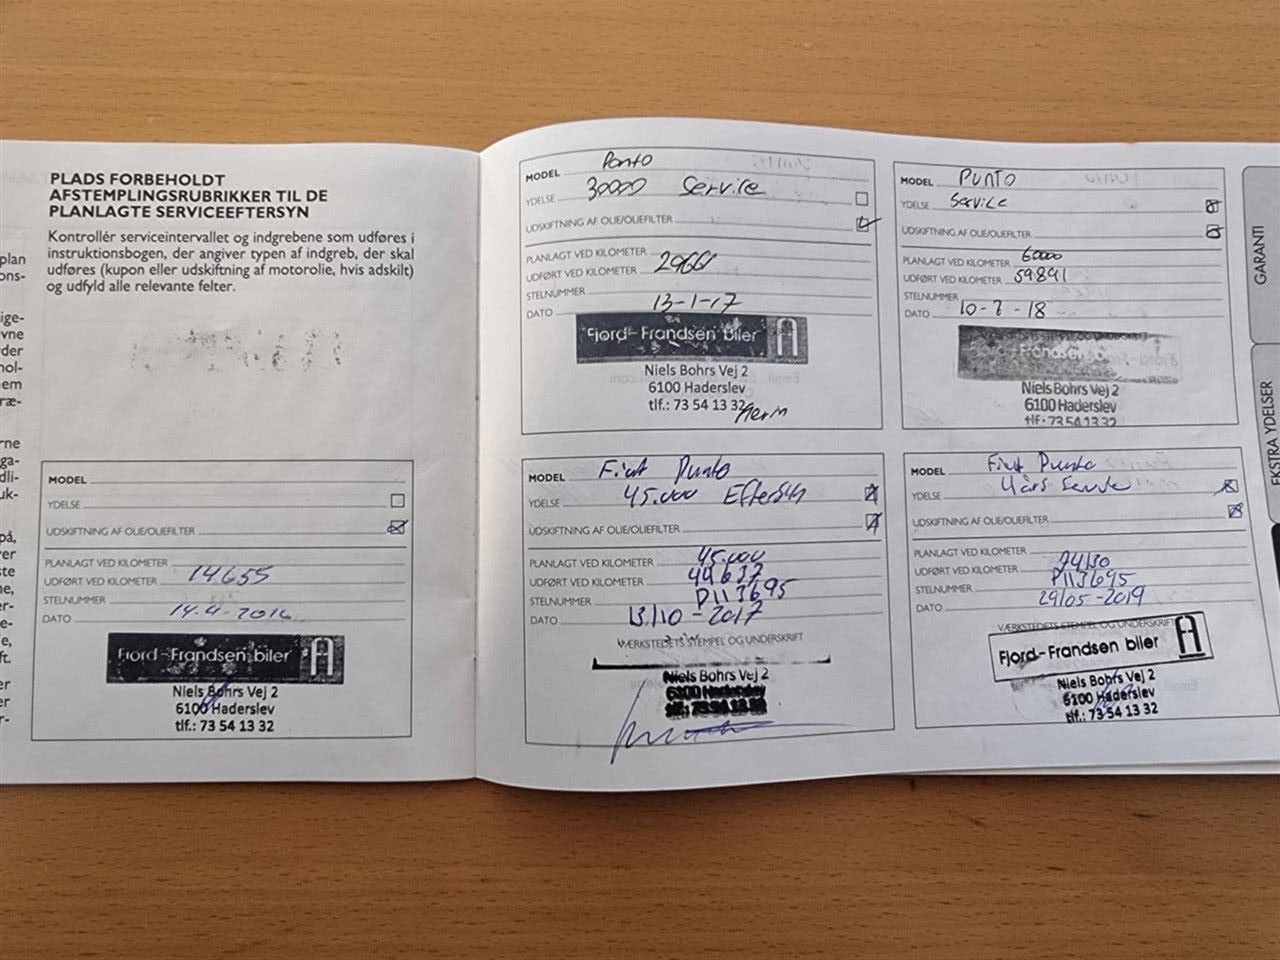 PLADS FORBEHOLDT
AFSTEMPLINGSRUBRIKKER TIL DE
PLANLAGTE SERVICEEFTERSYN
Kontrollér serviceintervallet og indgrebene som udføres i
instruktionsbogen, der angiver typen af indgreb, der skal
udføres (kupon eller udskiftning af motorolie, hvis adskilt)
og udfyld alle relevante felter.
MODEL
YDELSE
UDSKIFTNING AF OLIE/OLIEFILTER
PLANLAGT VED KILOMETER
UDFØRT VED KILOMETER 14.655
STELNUMMER
DATO 14.4-2016
Fjord-Frandsen biler
Niels Bohrs Vej 2
6100 Haderslev
tlf.: 73 54 13 32
MODEL Punto
YDELSE 30000 Service
UDSKIFTNING AF OLIE/OLIEFILTER
PLANLAGT VED KILOMETER
UDFØRT VED KILOMETER
STELNUMMER
DATO 13-1-17
Fjord-Frandsen biler
Niels Bohrs Vej 2
6100 Haderslev
tlf.: 73 54 13 32
MODEL Fiat Punto
YDELSE 45.000 Eftersyn
UDSKIFTNING AF OLIE/OLIEFILTER
PLANLAGT VED KILOMETER 45.000
UDFØRT VED KILOMETER 44637
STELNUMMER P113695
DATO 13/10-2017
VÆRKSTEDETS STEMPEL OG UNDERSKRIFT
Niels Bohrs Vej 2
6100 Haderslev
tlf.: 73 54 13 32
MODEL PUNTO
YDELSE Service
UDSKIFTNING AF OLIE/OLIEFILTER
PLANLAGT VED KILOMETER 60000
UDFØRT VED KILOMETER 59.891
STELNUMMER
DATO
Fjord-Frandsen biler
Niels Bohrs Vej 2
6100 Haderslev
tlf.: 73 54 13 32
MODEL Fiat Punto
YDELSE 4 års Service
UDSKIFTNING AF OLIE/OLIEFILTER
PLANLAGT VED KILOMETER
UDFØRT VED KILOMETER 74130
STELNUMMER P113695
DATO 29/05-2019
VÆRKSTEDETS STEMPEL OG UNDERSKRIFT
Fjord-Frandsen biler
Niels Bohrs Vej 2
6100 Haderslev
tlf.: 73 54 13 32
GARANTI
EKSTRA YDELSER